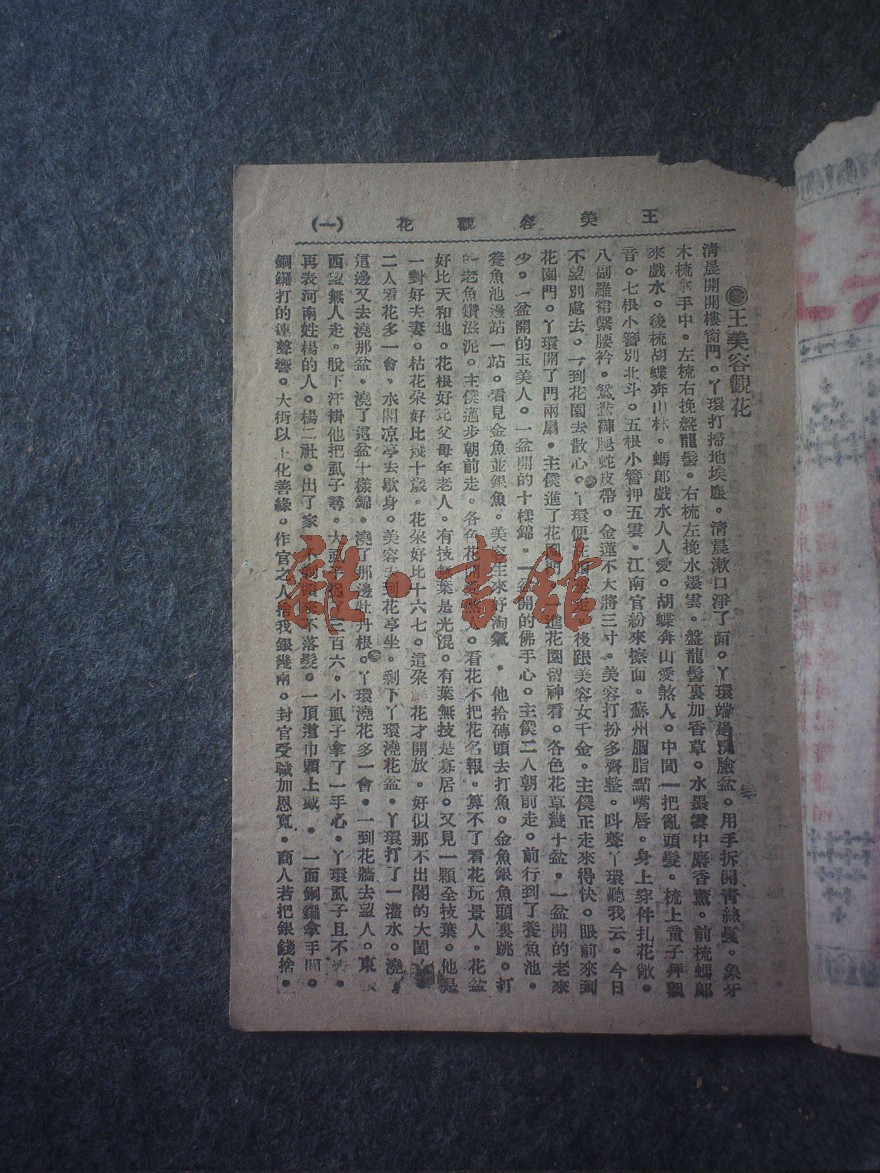 王美容觀花 （一）
王美容觀花
清晨開開樓窗門。丫環打掃地埃塵。清晨漱口淨了面。丫環端過洗臉盆。用手拆開青絲髮。象牙
木梳拿手中。左梳右挽盤龍髻。右梳左挽水墨雲。盤龍髻裏加香草。水墨雲中麝香薰。前梳螞郎
來戲水。後梳胡蝶奔山林。螞郎戲水人人愛。胡蝶奔山愛煞人。中間一把亂頭髮。梳上童子拜觀
音。七根小簪別北斗。五根小簪押五雲。江南官紛來擦面。蘇州胭脂點嘴唇。身上穿件扎花
八副羅裙繫腰衿。鴛鴦 腿蛇皮帶。金蓮不大將三寸。美容打扮多齊整。叫聲丫環聽我云。今日
不望別處去。一到花園去散心。丫環便 後跟美容女千金。主僕正走來得快。眼前來到
花園門。丫環開了門兩扇。主僕進了花園門。一進花園留神看。各色花草幾十盆。一盆開的老來
少。一盆開的玉美人。一盆開的十樣錦。一盆開的佛手心。主僕二人朝前走。前行到了養魚池。
養魚池邊站一站。看見金魚並銀魚。美容生來好淘氣。他拾磚頭去打魚。金魚銀魚頭裏跳。打
的老魚鑽滋泥。主僕邁步朝前走。各色花 看花不把花名報。算不了看花玩景人。花盆
好比天和地。花根好比父母年老人。有技無葉是光混。有葉無技是寡居。又見一顆全技葉。他是
一對好夫妻。枯花朵好比幾十歲。花朵好比十六七。這朶 花才開放。好似那不出閣的大閨
二人看花多一會。水閣凉亭去歇身。美容去到花亭坐。剩下丫環澆花盆。丫環打了一灌水。澆
這邊又去澆那盆。澆了這盆十樣錦。澆了那邊牡丹根。丫環澆花多一會。一到花牆去望人。東
西望無人走。脫下汗褂他把虱子尋。大虱子 三百六。小虱子拿了一手心。丫環虱子且不表。
再表河南姓楊的人。楊二社。出了家 不落髮。一頂道巾頭上戴。一面銅鑼拿手間。
銅鑼打的連聲響。大街以上化善緣。作官之人捨我銀幾兩。封官受職加恩寬。商人若把銀錢捨。
雜·書館